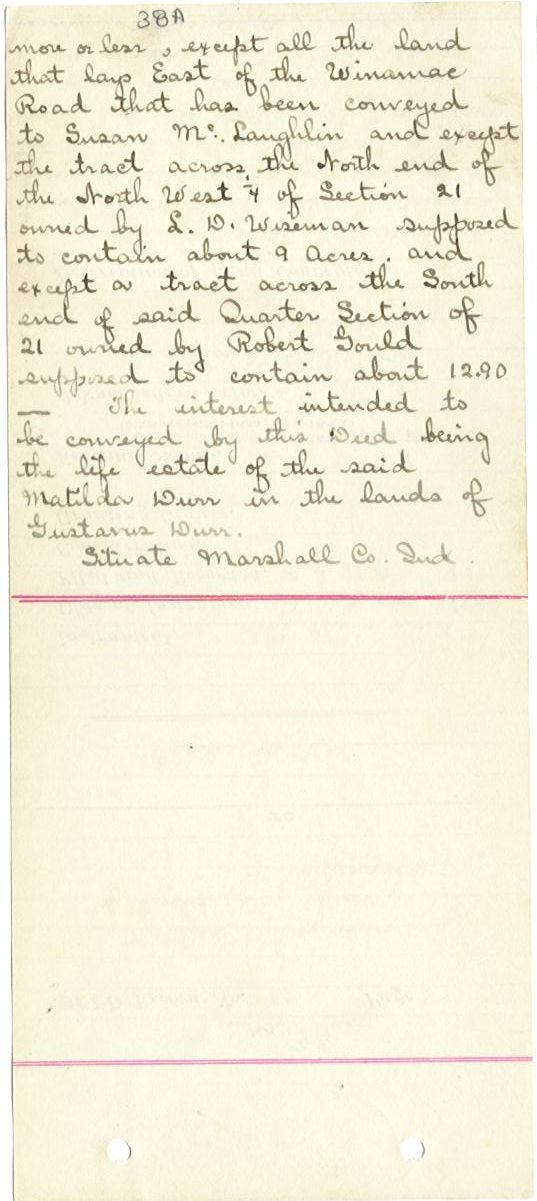 38A
more or less, except all the land
that lays East of the Winamac
Road that has been conveyed
to Susan Mc. Laughlin and except
the tract across, the North end of
the North West ¼ of Section 21
owned by L. D. Wiseman supposed
to contain about 9 Acres. and
except a tract across the South
end of said Quarter Section of
21 owned by Robert Gould
supposed to contain about 12.90
— The interest intended to
be conveyed by this Deed being
the life estate of the said
Matilda Durr in the lands of
Gustavus Durr.
Situate Marshall Co. Ind.